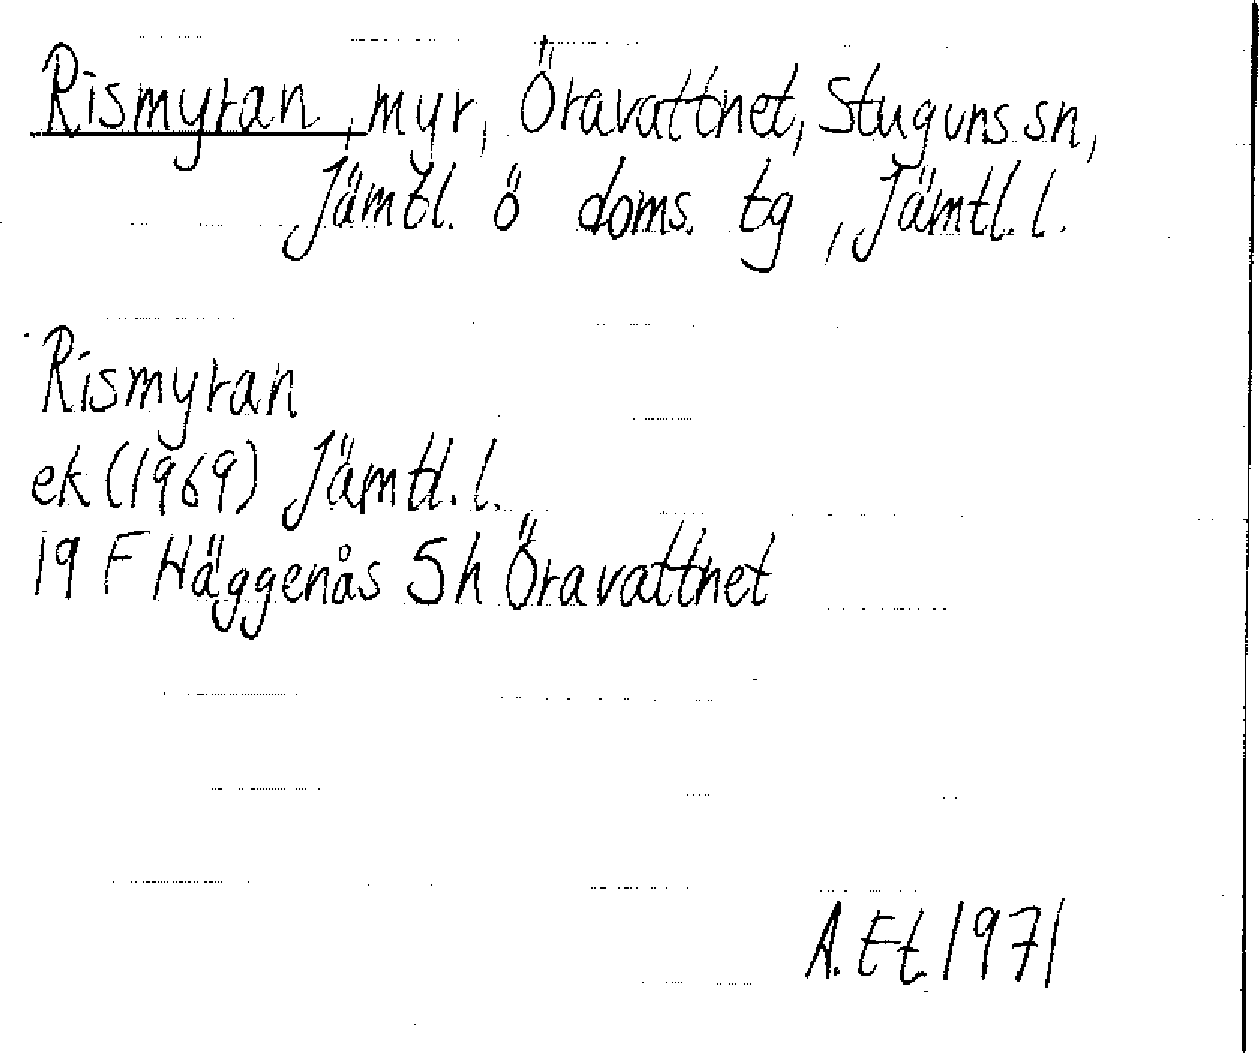 Rismyran, myr, Öravattnet, Stuguns sn,
Jämtl. ö doms. tg, Jämtl. l.
Rismyran
ek (1969) Jämtl. l.
19 F Häggenås 5 h Öravattnet
A. Et 1971